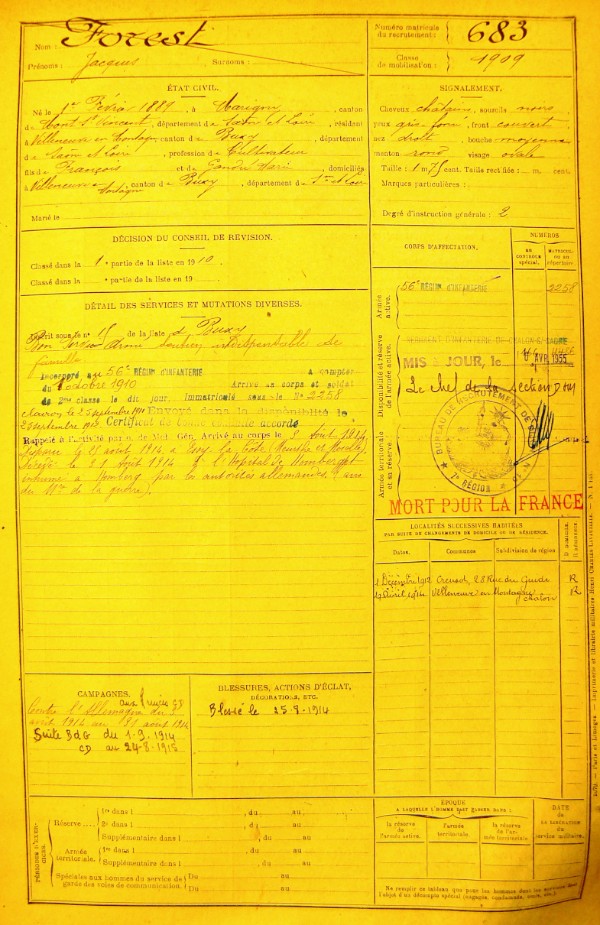 Nom : Forest
Prénoms : Jacques Surnoms :
Numéro matricule du recrutement : 683
Classe de mobilisation : 1909
ÉTAT CIVIL.
Né le 1er 1889, à Marigny, canton
de Mont St Vincent, département de Saône et Loire, résidant
à Villeneuve en Montagne, canton de Buxy, département
de Saône et Loire, profession de Cultivateur
fils de François et de Marie, domiciliés
à Villeneuve en Montagne, canton de Buxy, département de S. et Loire
Marié le
SIGNALEMENT.
Cheveux châtains, sourcils noirs
yeux gris foncé, front couvert
nez droit, bouche moyenne
menton rond, visage ovale
Taille : 1 m. 75 cent. Taille rectifiée : m. cent.
Marques particulières :
Degré d'instruction générale : 2
DÉCISION DU CONSEIL DE RÉVISION.
Classé dans la 1e partie de la liste en 1910
Classé dans la partie de la liste en 19
DÉTAIL DES SERVICES ET MUTATIONS DIVERSES.
Inscrit sous le n° de la liste de Buxy
Bon service soutien indispensable de
famille
Incorporé au 56e RÉGIM. D'INFANTERIE à compter
du octobre 1910 Arrivé au corps et soldat
de 2me classe le dit jour. Immatriculé sous le N° 2258
clairon le 25 septembre 1911 Envoyé dans la disponibilité le
Certificat de bonne conduite accordé
Rappelé à l'activité par o. de Mob. Gén. Arrivé au corps le 3 août 1914
Disparu le 25 août 1914 à
Décédé le 31 août 1914 à l'hôpital de Hombourg
inhumé à Hombourg par les autorités allemandes (avis
du Mre de la guerre).
CORPS D'AFFECTATION.
NUMÉROS
AU CONTRÔLE spécial.
MATRICULE ou au répertoire
Armée active.
56e RÉGIM. D'INFANTERIE
2258
Disponibilité et réserve de l'armée active.
RÉGIMENT D'INFANTERIE DE CHALON-S/-SAÔNE
MIS À JOUR, le AVR 1955
Le chef de la section
BUREAU DE RECRUTEMENT DE
RÉGION
Armée territoriale et sa réserve
MORT POUR LA FRANCE
LOCALITÉS SUCCESSIVES HABITÉES
PAR SUITE DE CHANGEMENTS DE DOMICILE OU DE RÉSIDENCE.
Dates. Communes Subdivision de région D. domicile. R. résidence.
1 Décembre 1912 Creusot, 28 Rue du Guide R
19 Avril 1914 Villeneuve en Montagne Chalon R
CAMPAGNES.
Contre l'Allemagne du 3
août 1914 au 31 août 1914
Suite BdG du 1-9-1914
CD au 24-8-1915
BLESSURES, ACTIONS D'ÉCLAT,
DÉCORATIONS, ETC.
Blessé le 25-8-1914
PÉRIODES D'EXERCICES.
Réserve
1re dans l , du au
2e dans l , du au
Supplémentaire dans l , du au
Armée territoriale.
1re dans l , du au
Supplémentaire dans l , du au
Spéciales aux hommes du service de garde des voies de communication. Du au
Du au
ÉPOQUE
À LAQUELLE L'HOMME DOIT PASSER DANS :
la réserve de l'armée active.
l'armée territoriale.
la réserve de l'armée territoriale.
DATE de LA LIBÉRATION du service militaire.